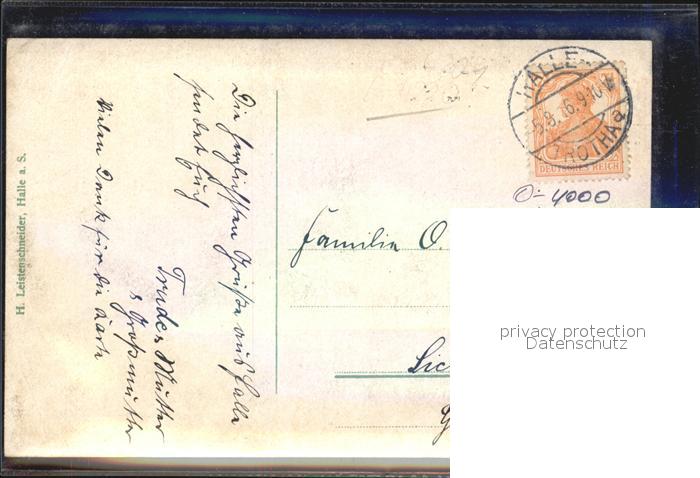 H. Leistenschneider, Halle a. S.
Die herzlichsten Grüße aus Halle
sendet Euch
Trude, Mutter
& Großmutter
Vielen Dank für die Karte
HALLE
6.9.10
TROTHA
DEUTSCHES REICH
4000
Familie O.
Lic
G
privacy protection
Datenschutz